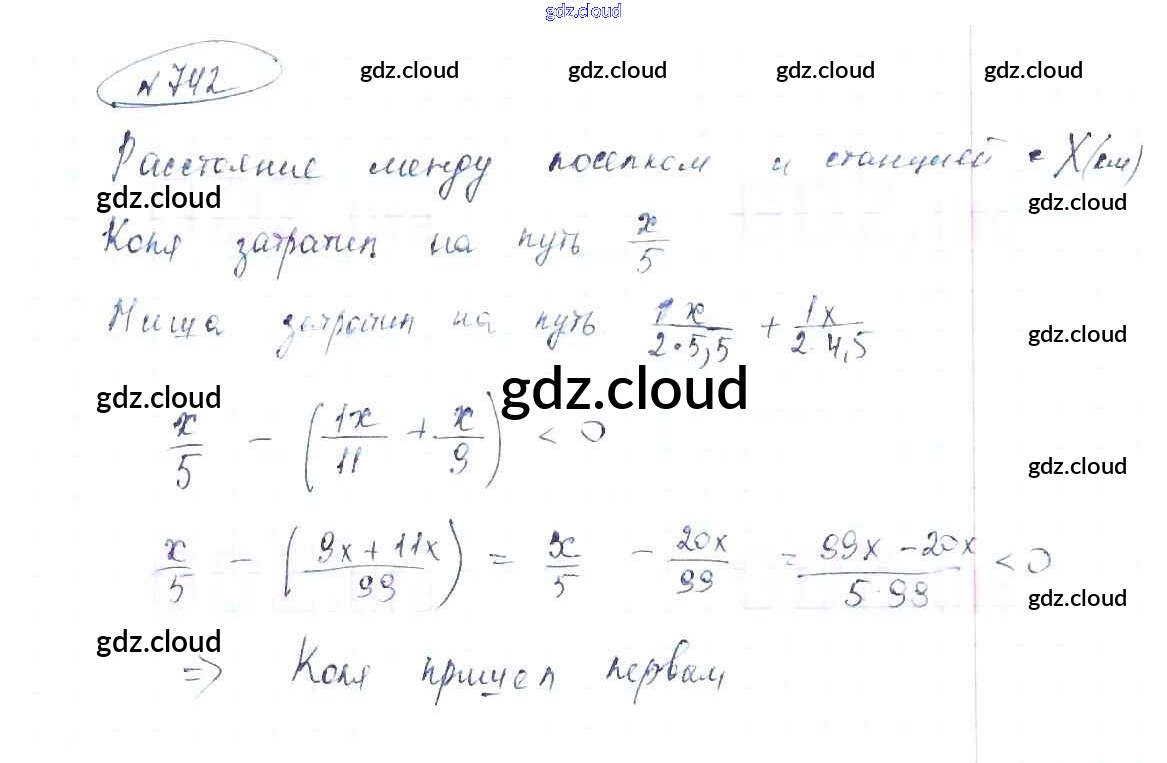 gdz.cloud
№ 742 gdz.cloud gdz.cloud gdz.cloud gdz.cloud
Расстояние между поселком и станцией - X(км)
gdz.cloud gdz.cloud
Коля затратил на путь x/5
Миша затратил на путь 1x/(2·5,5) + 1x/(2·4,5) gdz.cloud
gdz.cloud gdz.cloud
x/5 - (1x/11 + x/9) < 0
gdz.cloud
x/5 - ((9x + 11x)/99) = x/5 - 20x/99 = (99x - 20x)/(5·99) < 0
gdz.cloud
gdz.cloud
=> Коля пришел первым